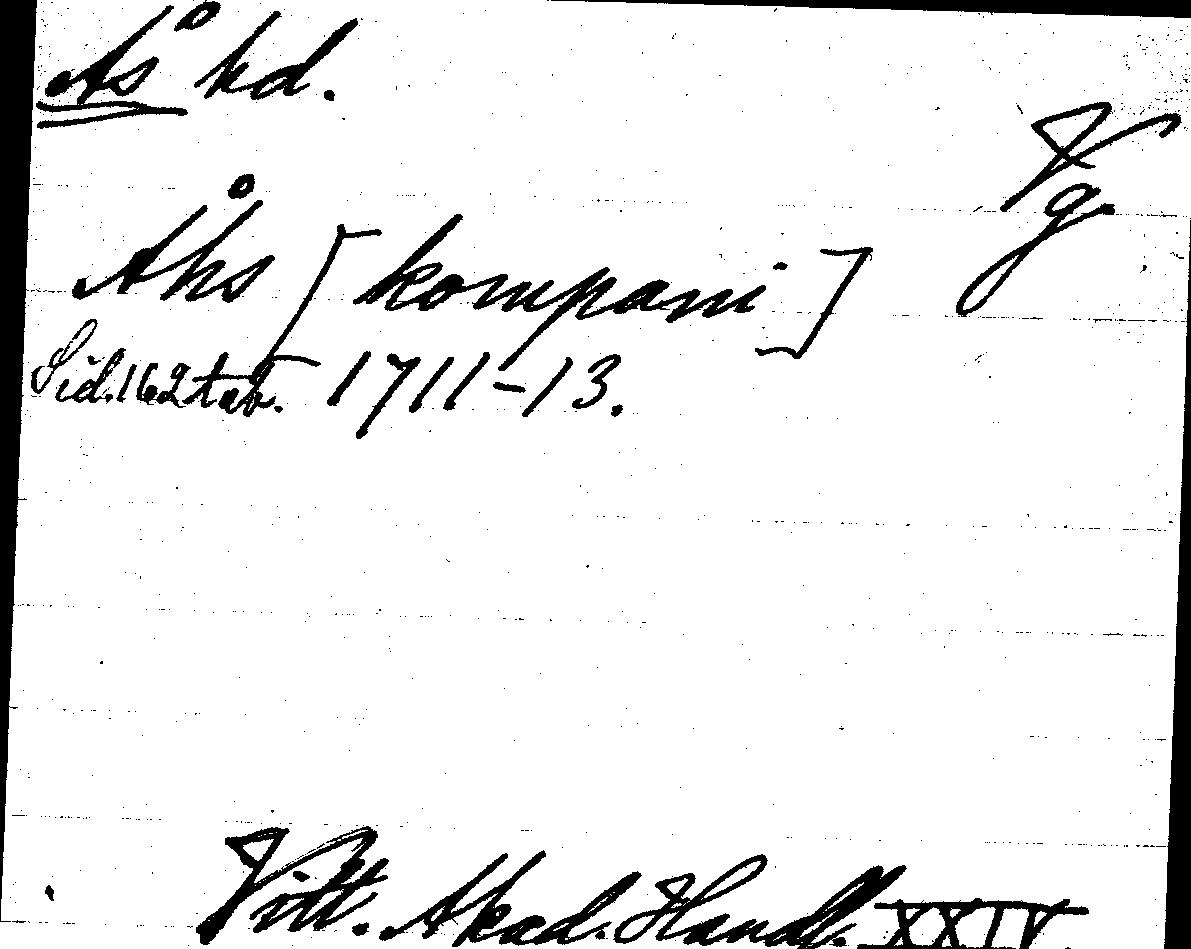 Ås hd.
Vg.
Åhs [kompani]
Sid. 162 tab. 1711-13.
Vitt. Akad. Handl. XXIV